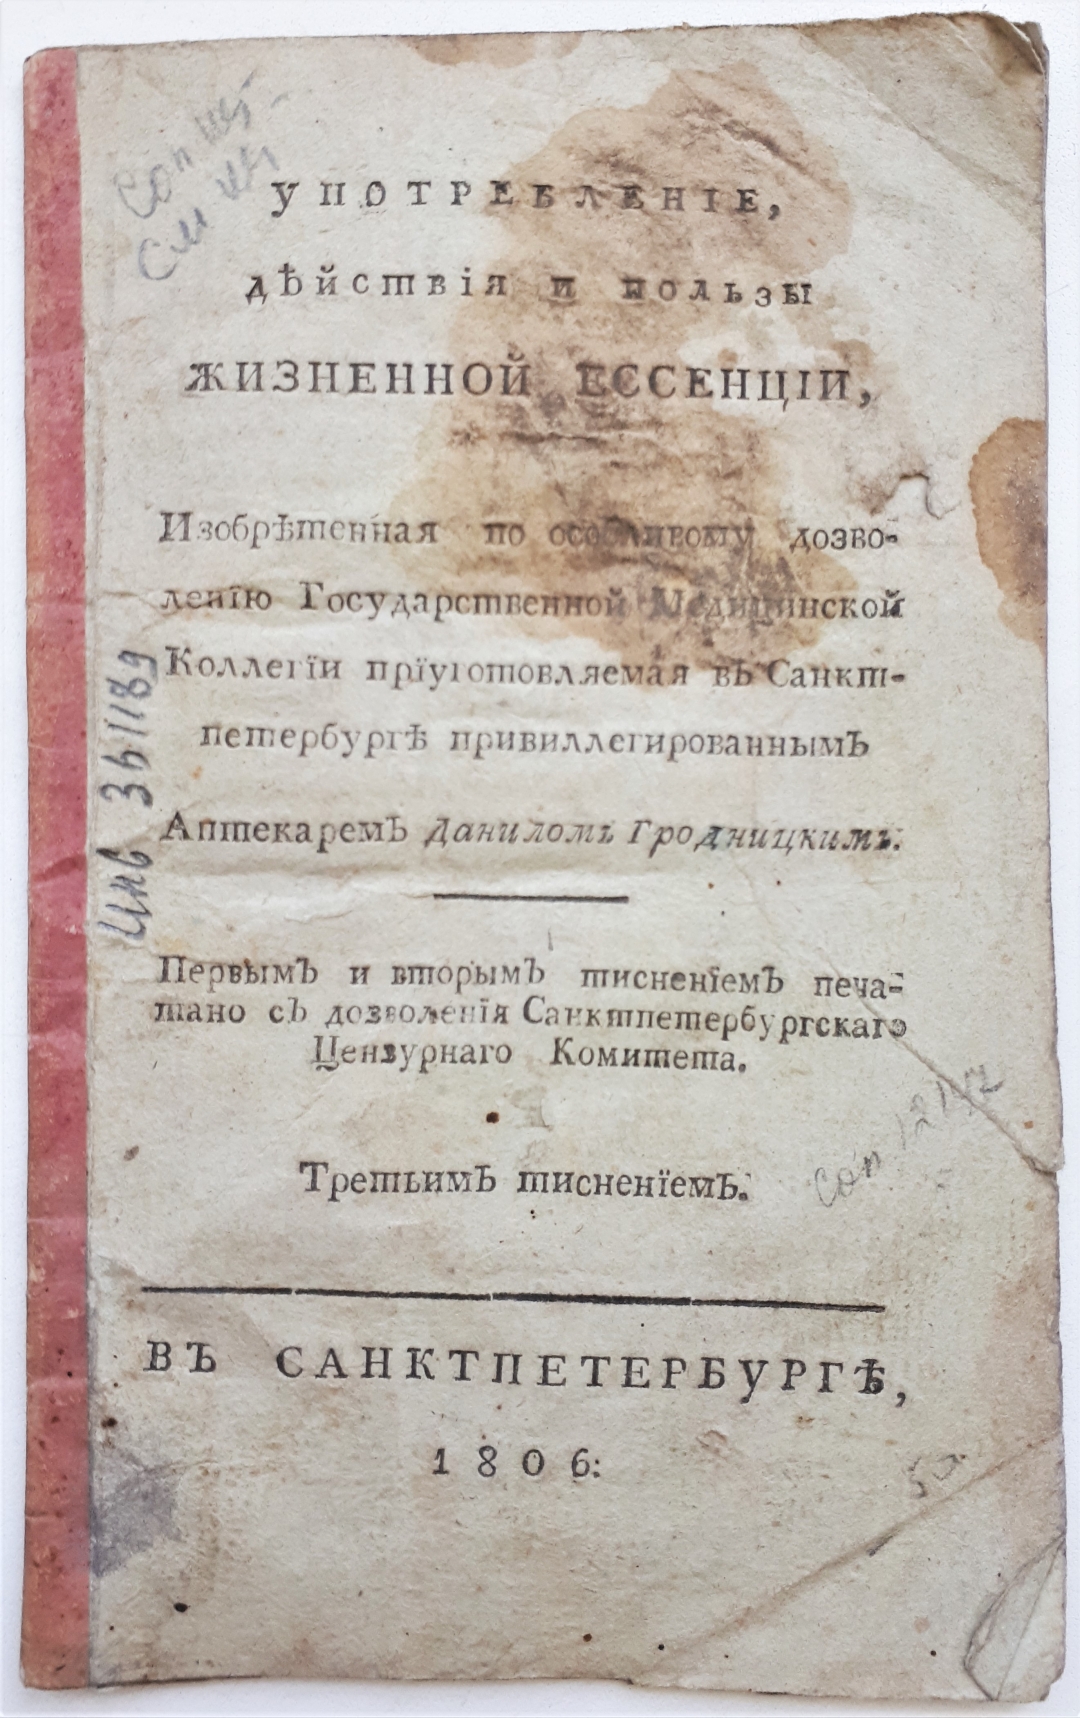 УПОТРЕБЛЕНІЕ,
дѢйствія и пользы
ЖИЗНЕННОЙ ЕССЕНЦІИ,
Изобрѣтенная по особливому дозво-
ленїю Государственной Медицинской
Коллегїи прїуготовляемая въ Санкт-
петербургѣ привиллегированнымъ
Аптекаремъ Даниломъ Гродницкимъ.
Первымъ и вторымъ тисненїемъ печа-
тано съ дозволенія Санктпетербургскаго
Цензурнаго Комитета.
Третьимъ тисненїемъ.
ВЪ САНКТПЕТЕРБУРГѢ,
1806.
Инв 361189